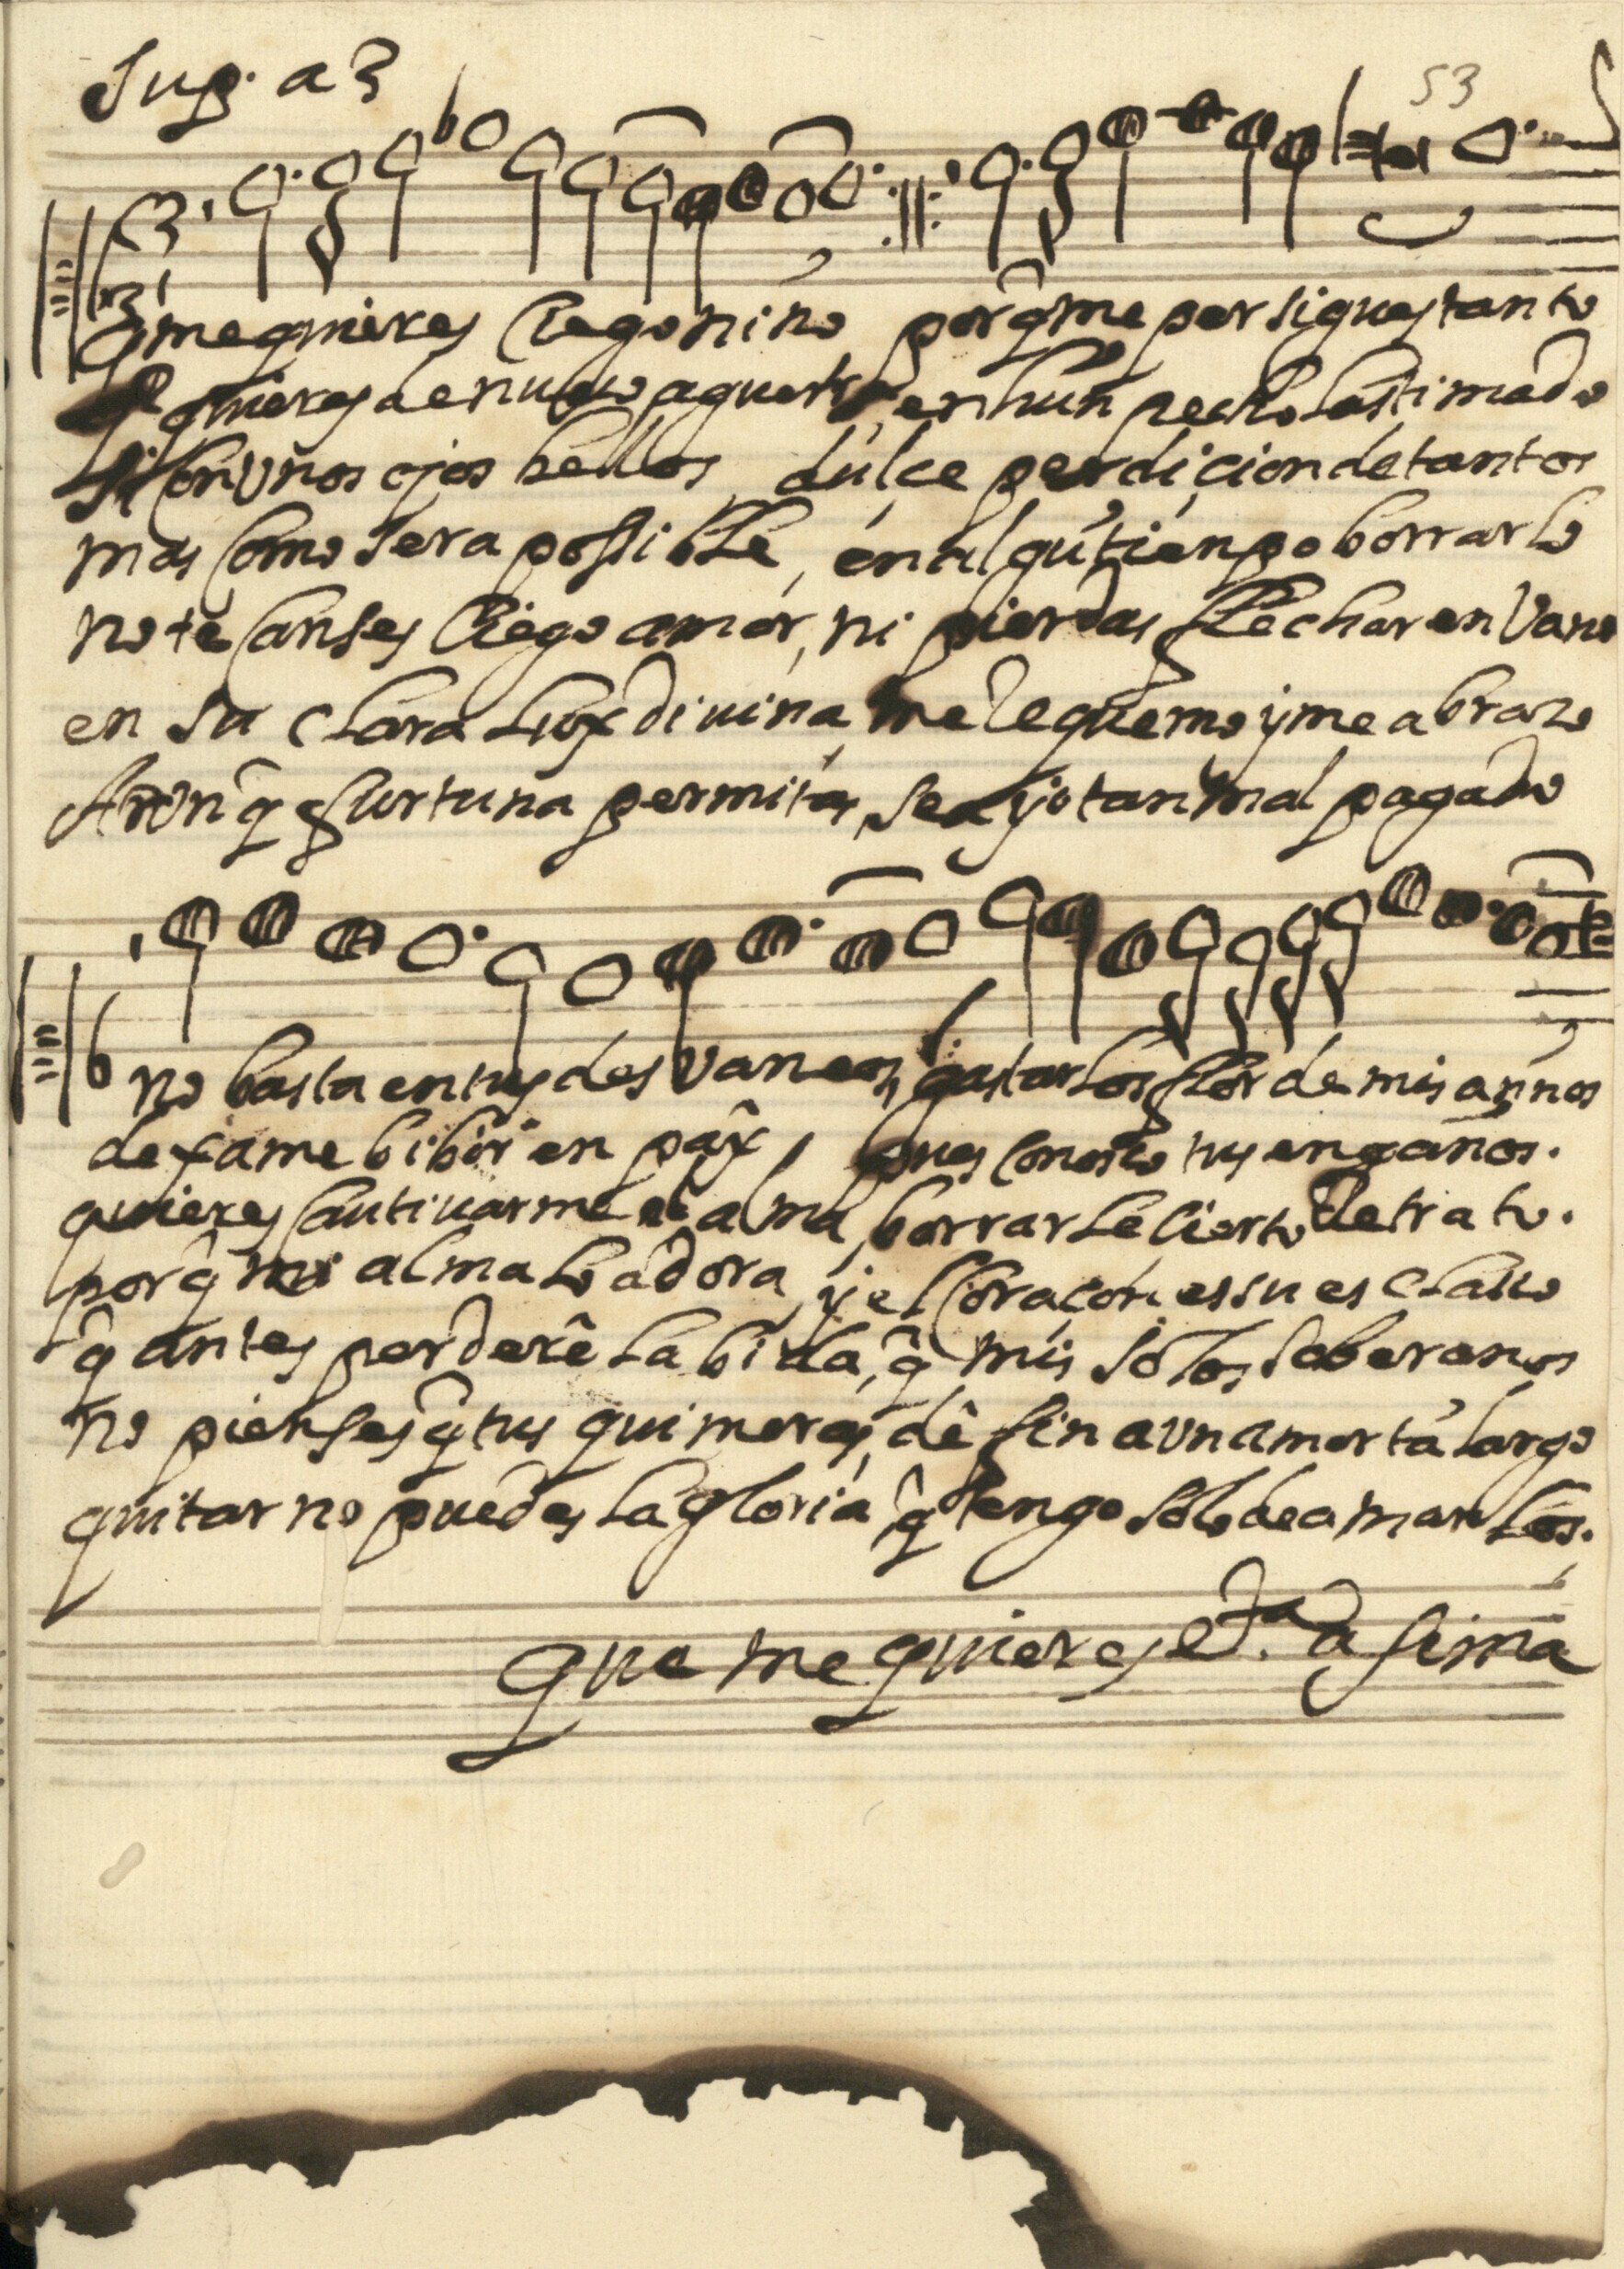 Sup. a 3
53
q̂ me quieres Ciego niño porq̂ me persigues tanto
q̂ quieres de nuevo aquesto en hun pecho lastimado
si con vnos ojos bellos dulçe perdiçion de tantos
mas Como sera possible, en algũ tienpo borrarlo
no te Canses Ciego amor, ni pierdas flechar en Vano
en su clara lux diuina me le quemo y me abrazo
Aunq̂ furtuna permita, sea yo tan mal pagado
no basta en tus desvaneos, gastar los flor de mis annos
dexame bibir en pax, pues Conosco tus engaños.
quieres Cautiuarme el alma, borrarle Cierto Retrato.
porq̂ mi alma lo adora, y el Coraçon es su esclauo
q̂ antes perdere la bida, q̂ mis solos soberanos
no pienses q̂ tus quimeras, dê fin a vn amor tã largo
quitar no puedes la gloria, q̂ tengo solo de amarlos.
que me quieres etª. a sima